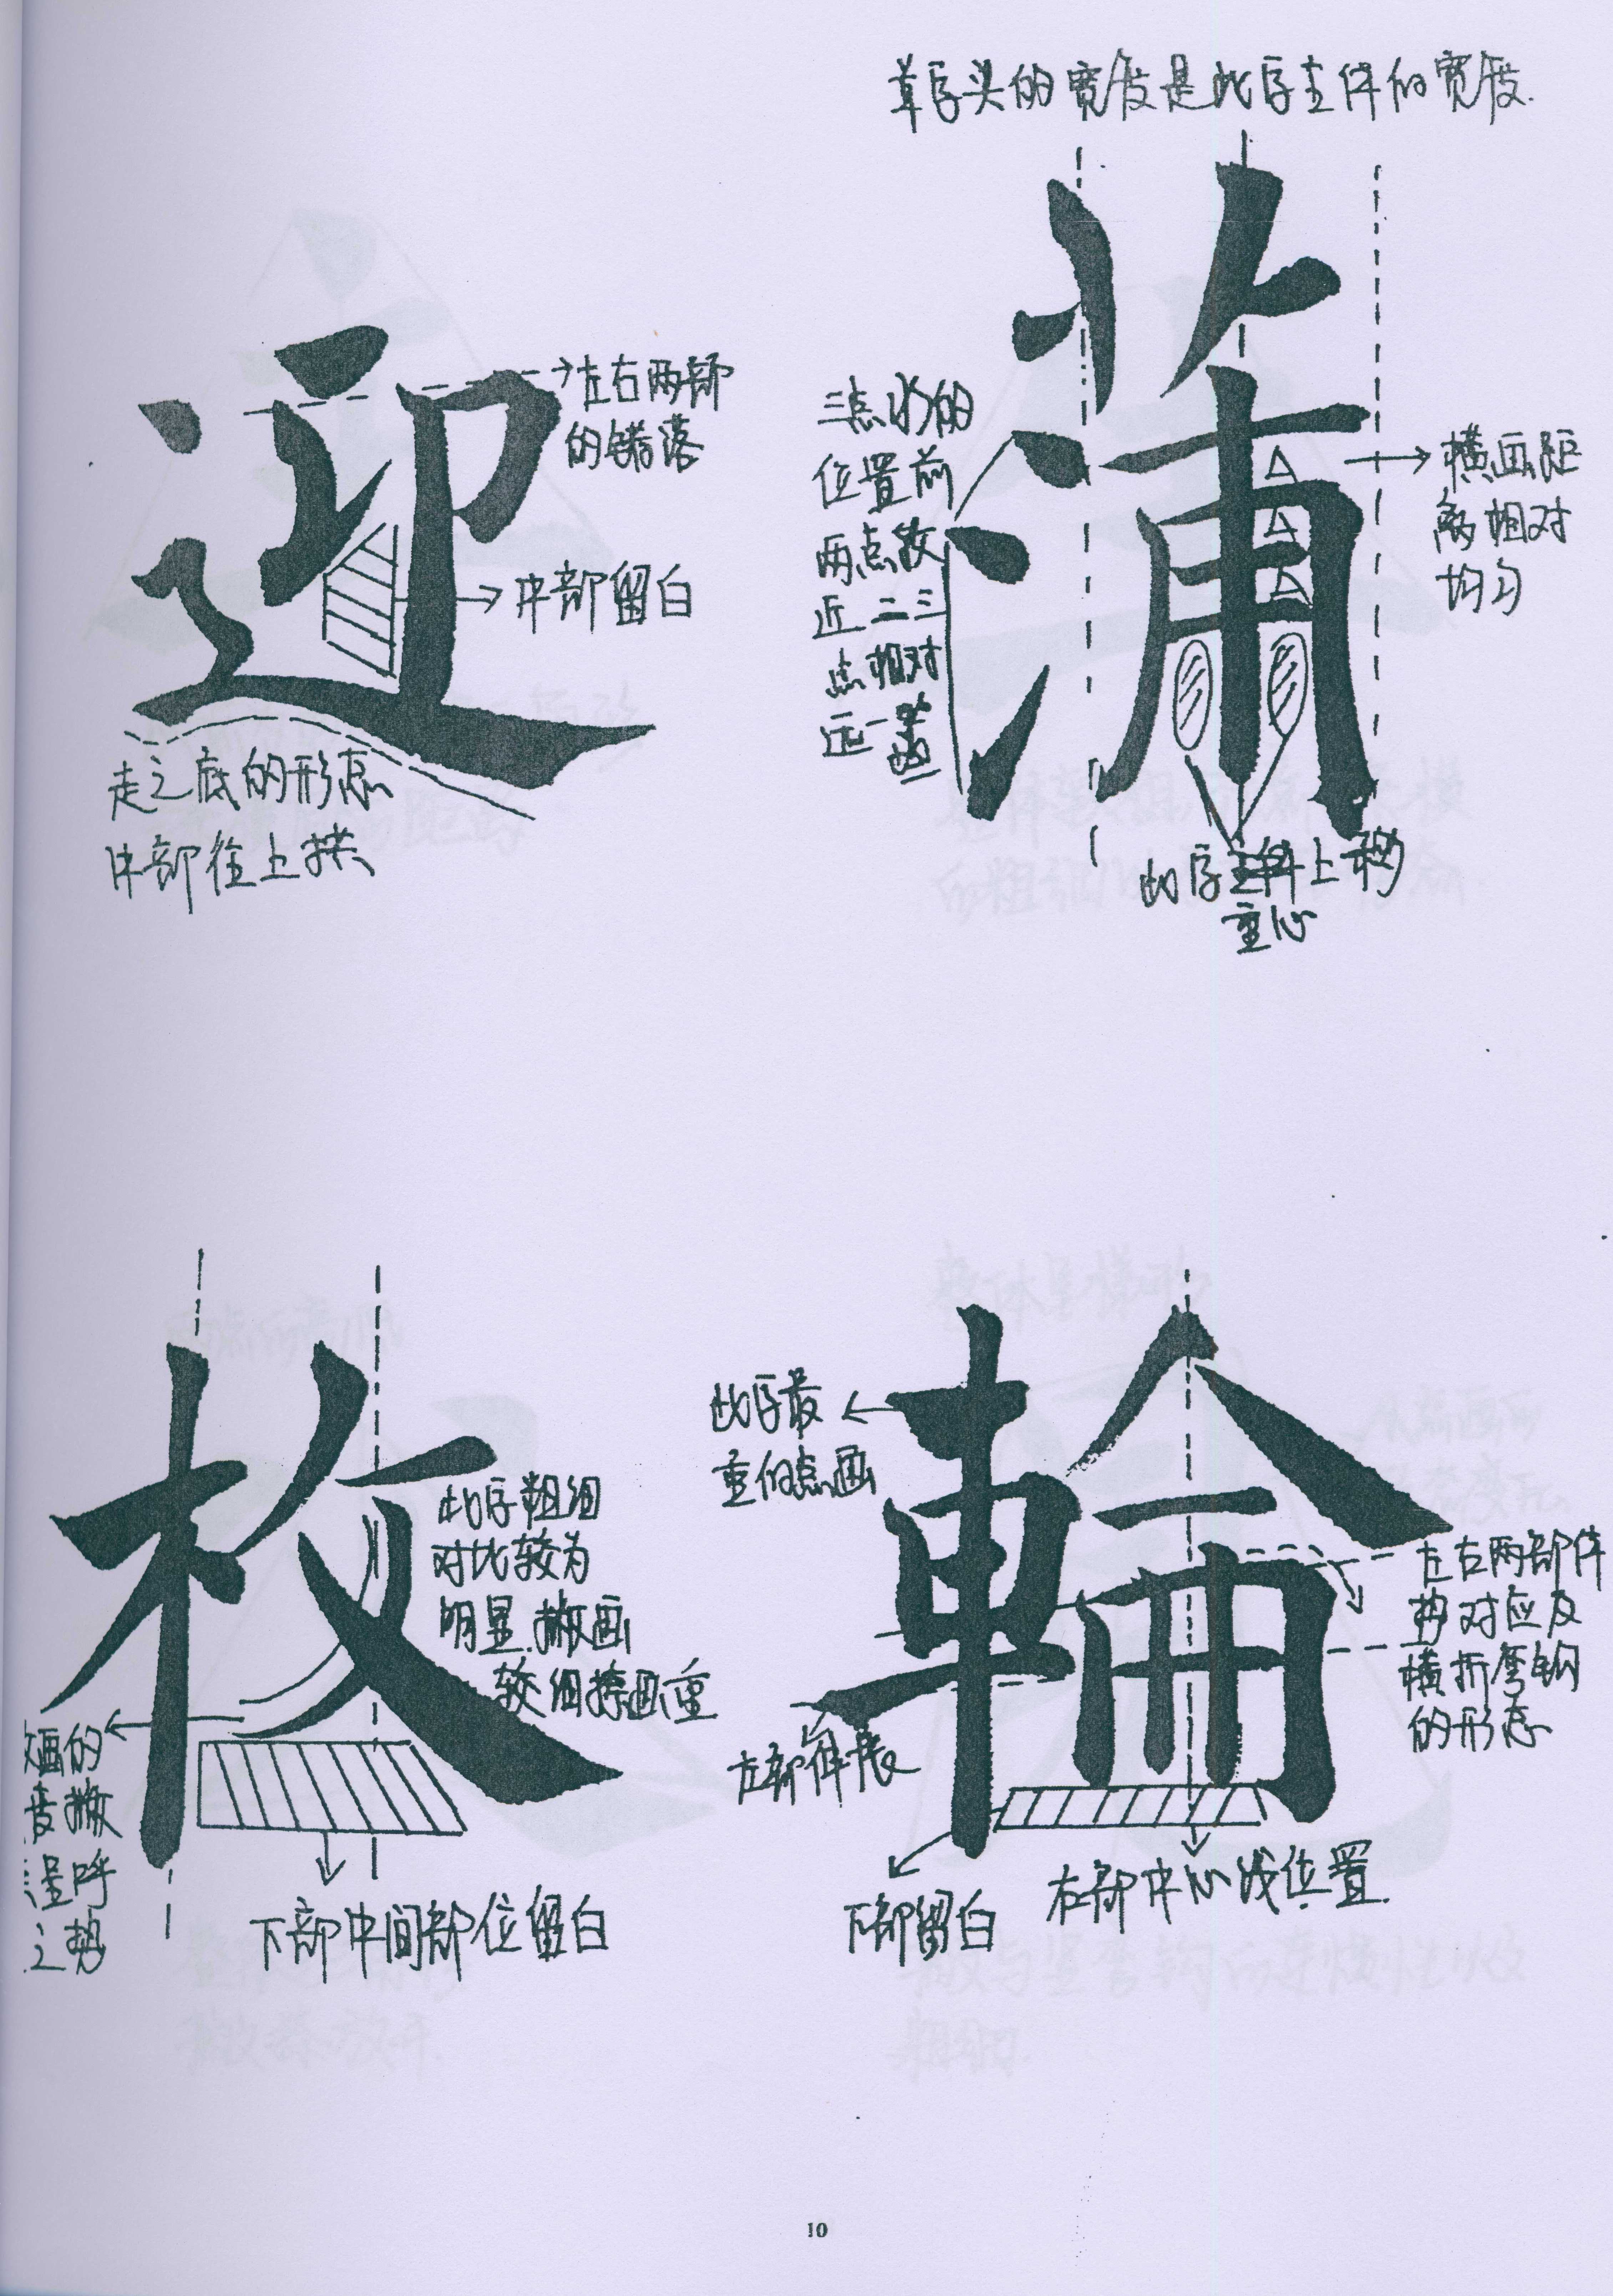 草字头的宽度是此字主件的宽度.
蒲
三点水的
位置前
两点较
近 二三
点相对
远一些
横画距
离相对
均匀
此字主件上移
重心
迎
左右两部
的错落
中部留白
走之底的形态
中部往上拱
枚
此字粗细
对比较为
明显.撇画
较细捺画重
的
撇
呈呼
之势
下部中间部位留白
輪
此字最
重的点画
左右两部件
的对应及
横折弯钩
的形态
左部件长
下部留白
右部中心线位置.
10